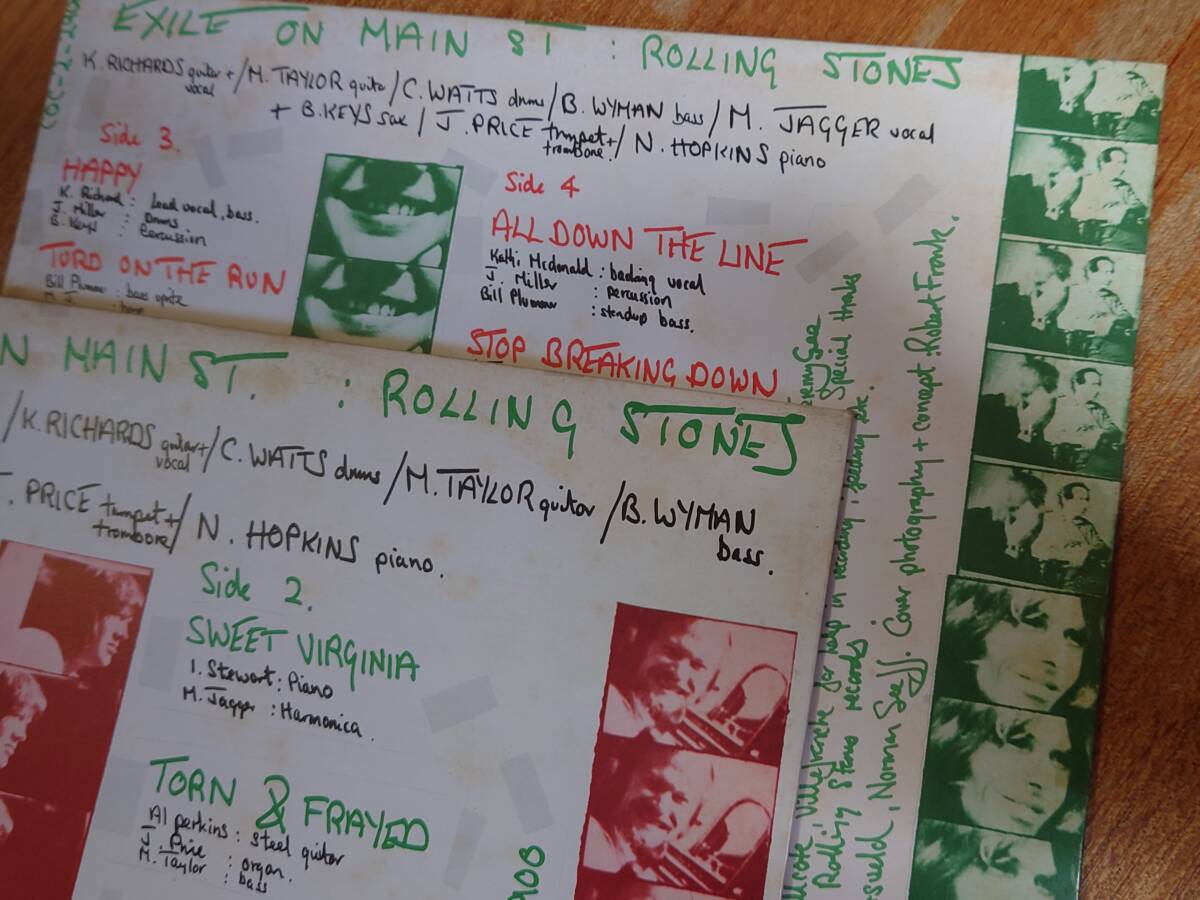 EXILE ON MAIN ST : ROLLING STONES
K. RICHARDS guitar + vocal / M. TAYLOR guitar / C. WATTS drums / B. WYMAN bass / M. JAGGER vocal
+ B. KEYS sax / J. PRICE trumpet + trombone / N. HOPKINS piano
Side 3.
HAPPY
K. Richard : lead vocal, bass.
J. Miller : Drums
B. Keys : Percussion
TURD ON THE RUN
Bill Plummer : bass uprite
Side 4
ALL DOWN THE LINE
Kathi McDonald : backing vocal
J. Miller : percussion
Bill Plummer : standup bass.
STOP BREAKING DOWN
N MAIN ST. : ROLLING STONES
/ K. RICHARDS guitar + vocal / C. WATTS drums / M. TAYLOR guitar / B. WYMAN bass.
PRICE trumpet + trombone / N. HOPKINS piano.
Side 2.
SWEET VIRGINIA
I. Stewart : Piano
M. Jagger : Harmonica.
TORN & FRAYED
Al perkins : steel guitar
J. Price : organ.
M. Taylor : bass
Special thanks
Villefranche for help in recording
Rolling Stones records
, Norman Seeff. Cover photography + concept : Robert Frank.